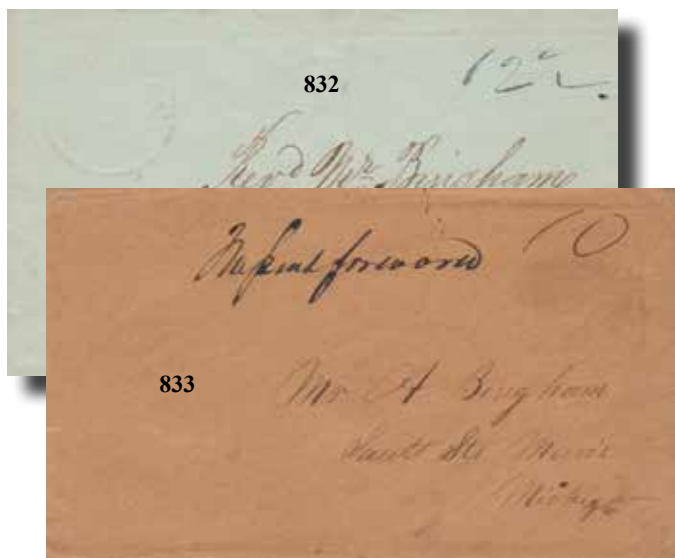 832
12½
Revd Mr. Bingham
forward
10
833
Mr A Bingham
Sault Ste Marie
Michigan